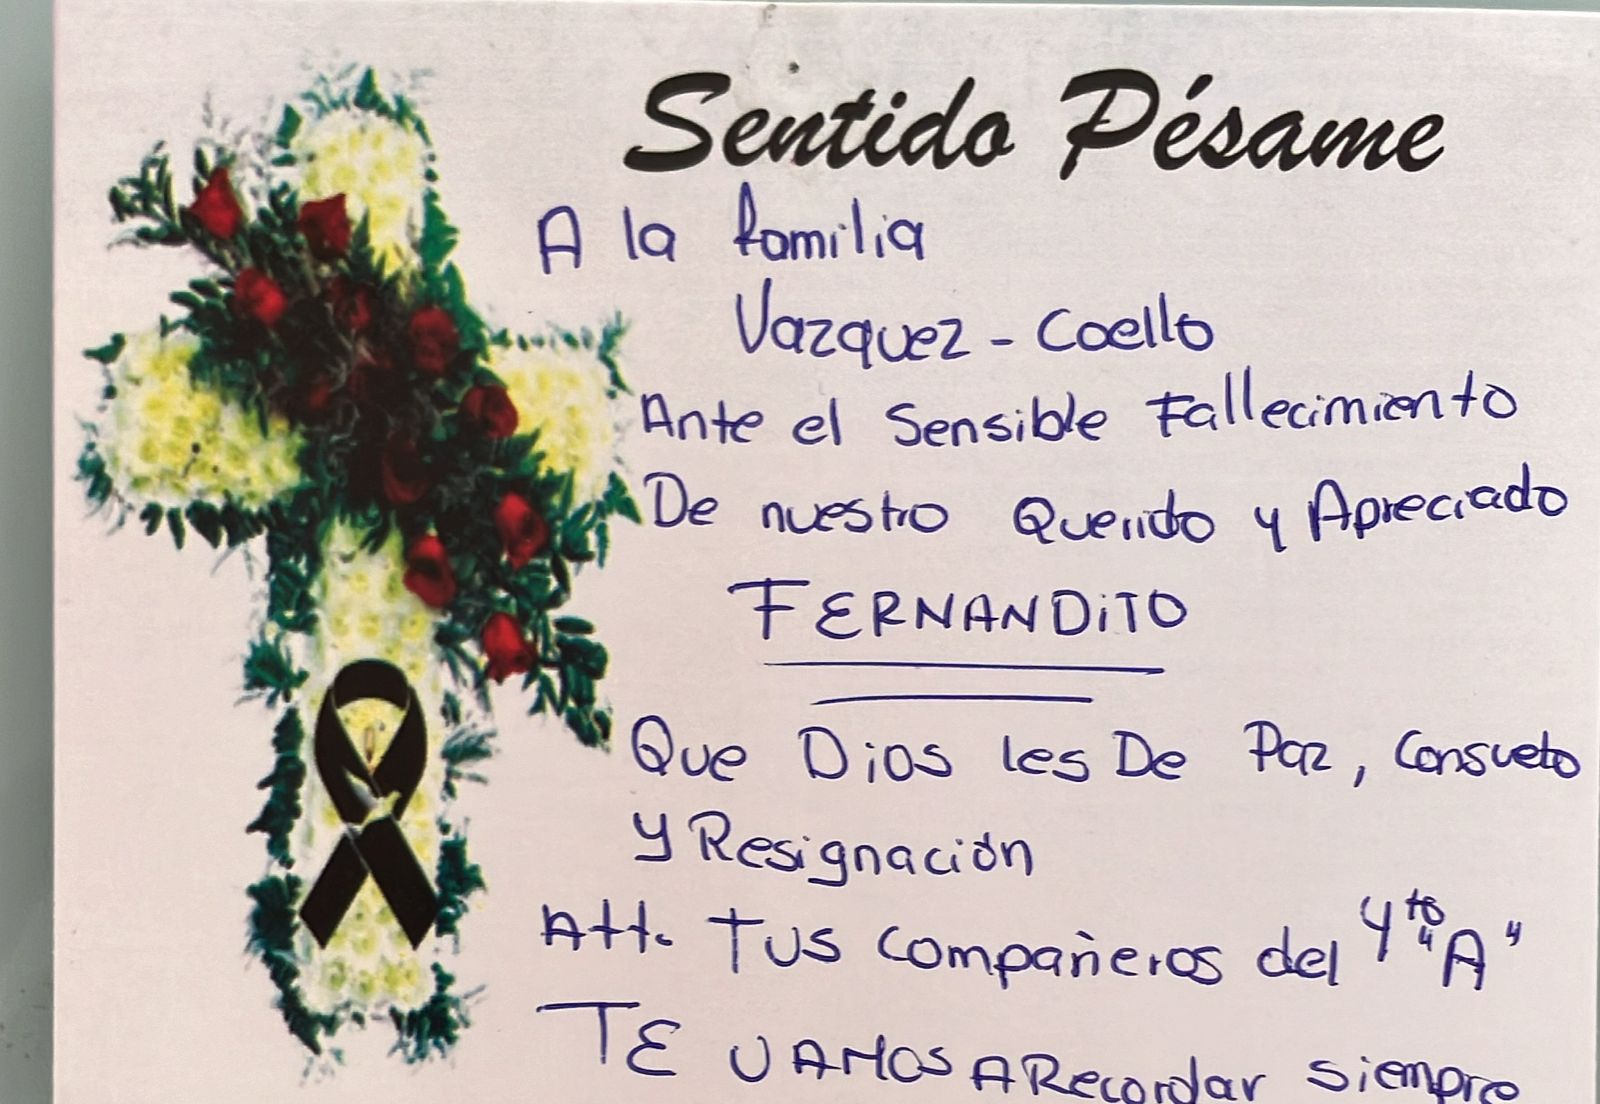 Sentido Pésame
A la familia
Vazquez - Coello
Ante el Sensible Fallecimiento
De nuestro Querido y Apreciado
FERNANDiTO
Que Dios les De Paz, Consuelo
y Resignación
Att. Tus compañeros del 4to "A"
TE VAMOS A Recordar siempre